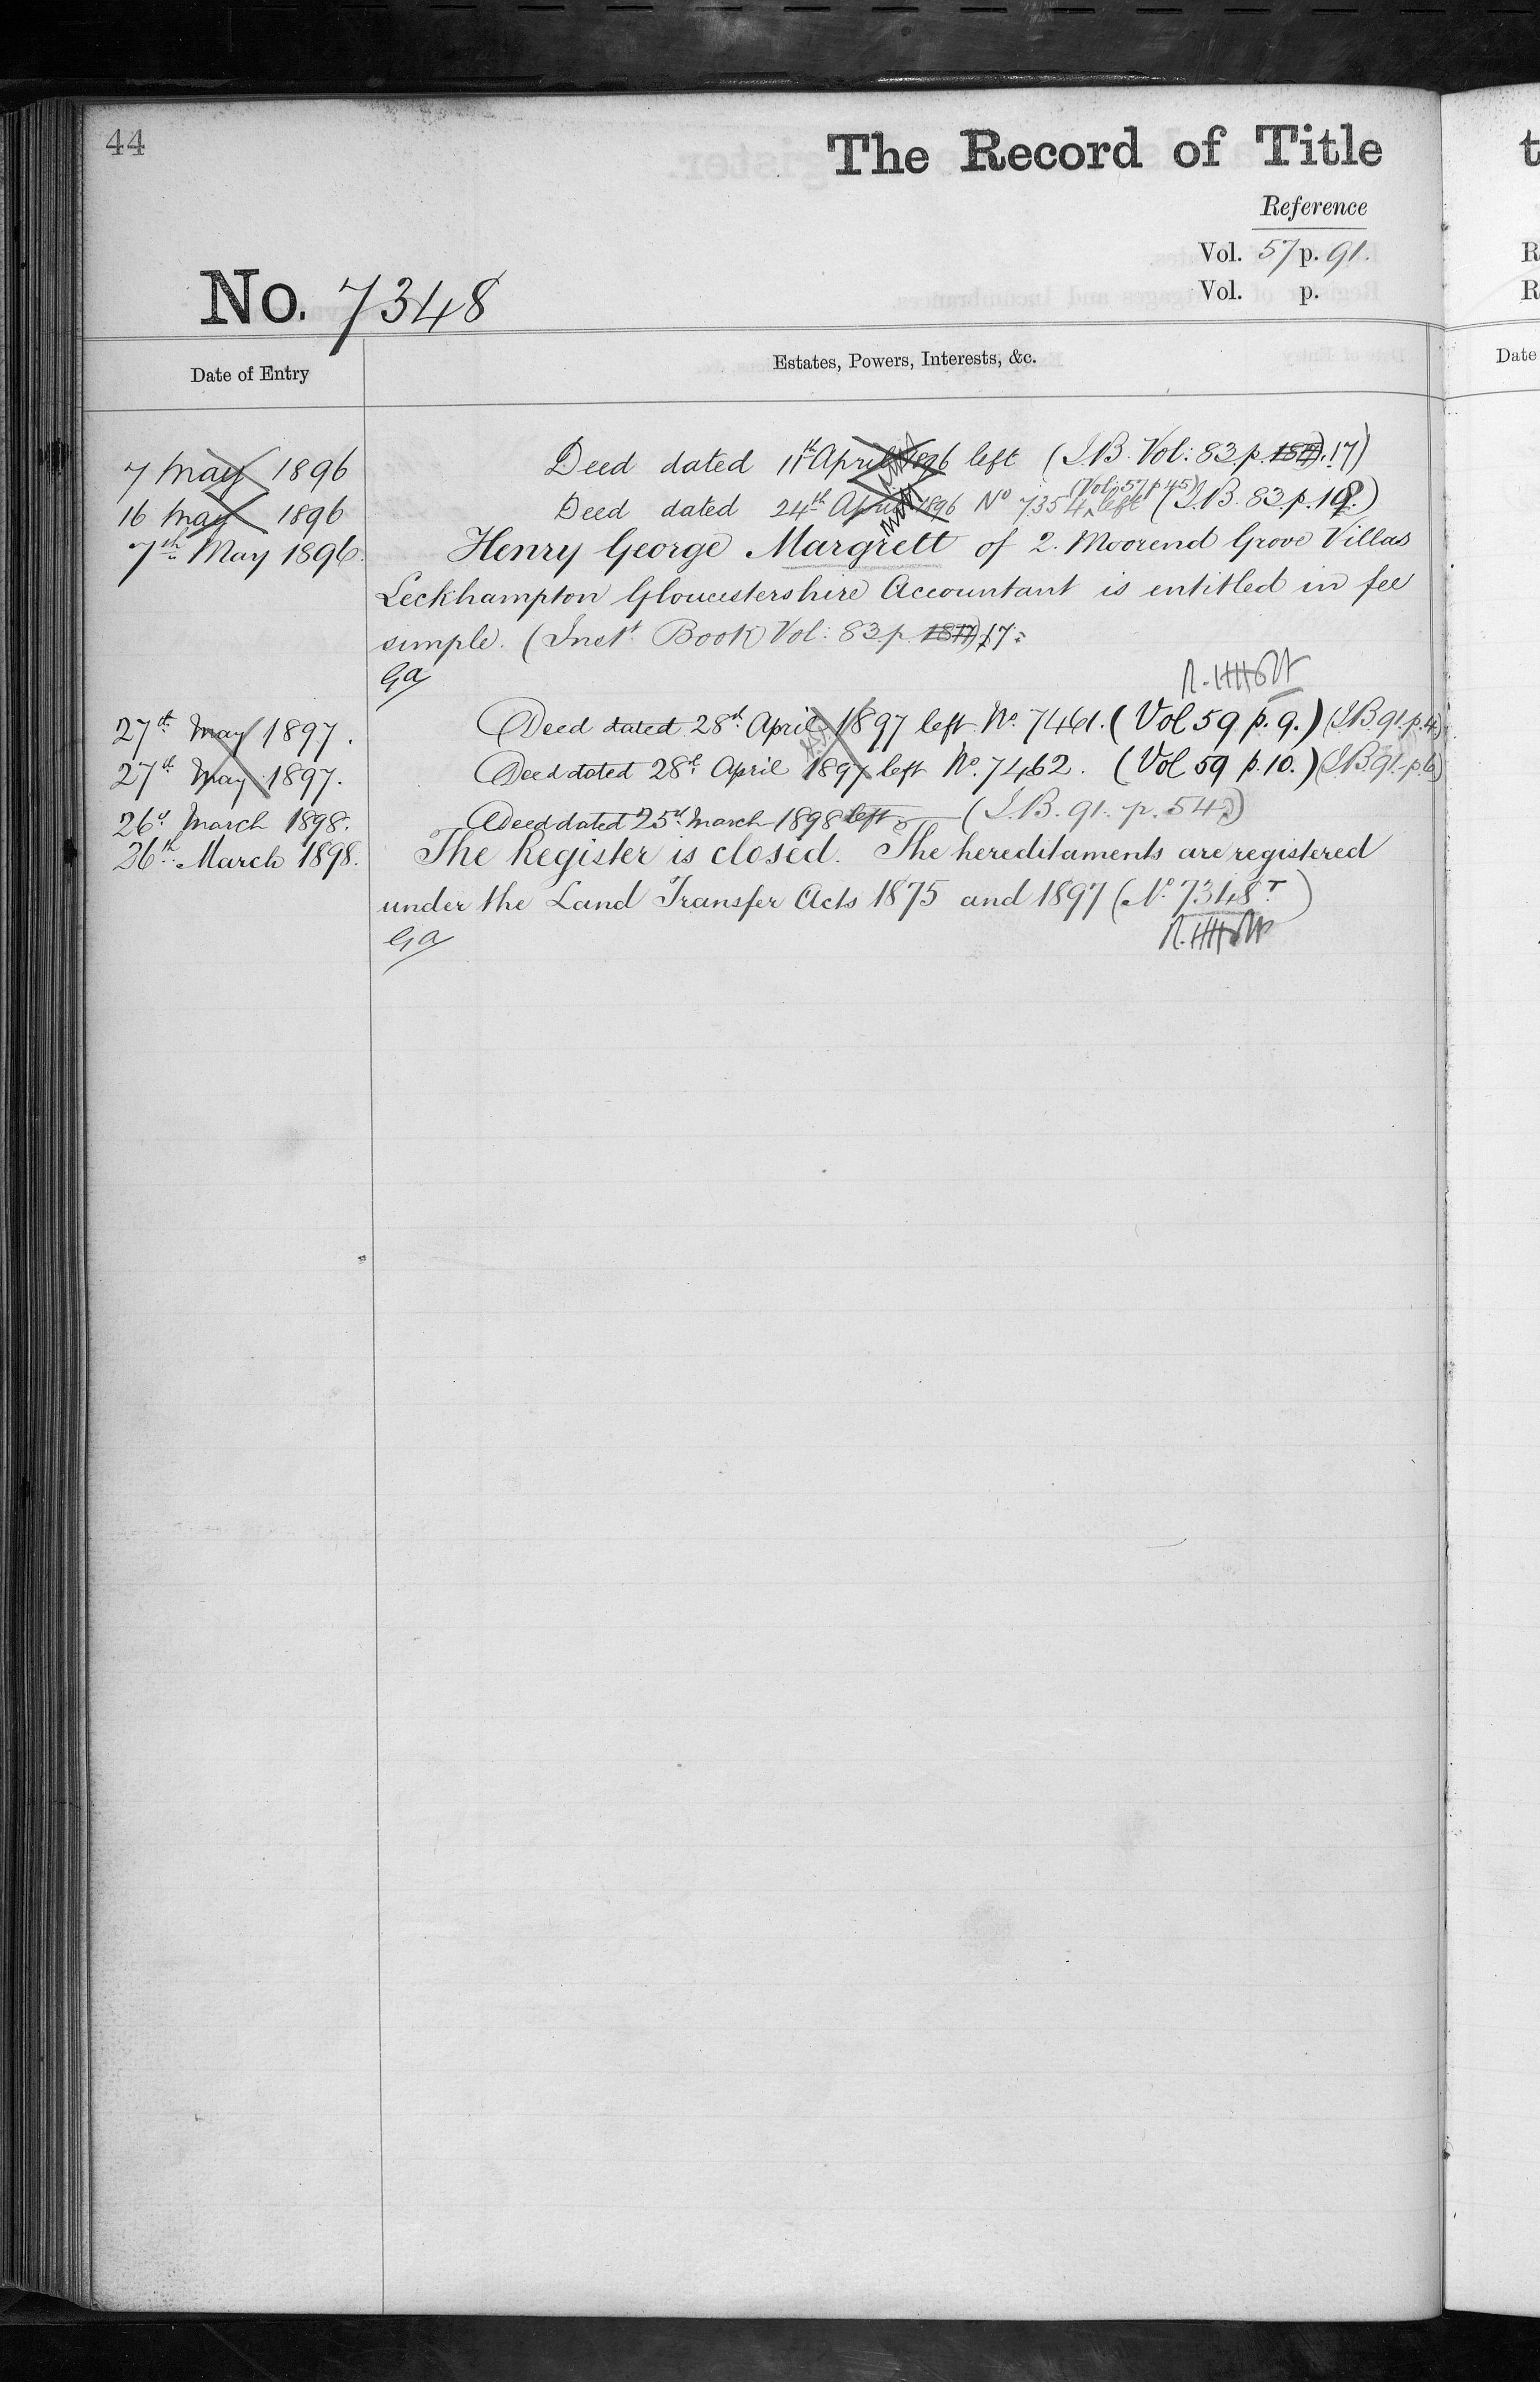 44
The Record of Title
Reference
Vol. 57 p. 91.
Vol. p.
No. 7348
Date of Entry
Estates, Powers, Interests, &c.
7 May 1896 Deed dated 11th April 1896 left (I.B. Vol: 83 p. 17)
16 May 1896 Deed dated 24th April 1896 No 7354 (Vol: 57 p 45) left (I.B. 83 p. 19.)
7th May 1896. Henry George Margrett of 2. Moorend Grove Villas
Leckhampton Gloucestershire Accountant is entitled in fee
simple. (Inst. Book Vol: 83 p. 17.
Ga
27th May 1897. Deed dated 28th April 1897 left No. 7461. (Vol 59 p. 9.) (I.B. 91. p. 4.)
27th May 1897. Deed dated 28th April 1897 left No. 7462. (Vol 59 p. 10.) (I.B. 91. p. 6.)
26th March 1898. A deed dated 25th March 1898 left (I.B. 91. p. 54.)
26th March 1898. The Register is closed. The hereditaments are registered
under the Land Transfer Acts 1875 and 1897 (No. 7348T.)
Ga
t
R
R
Date